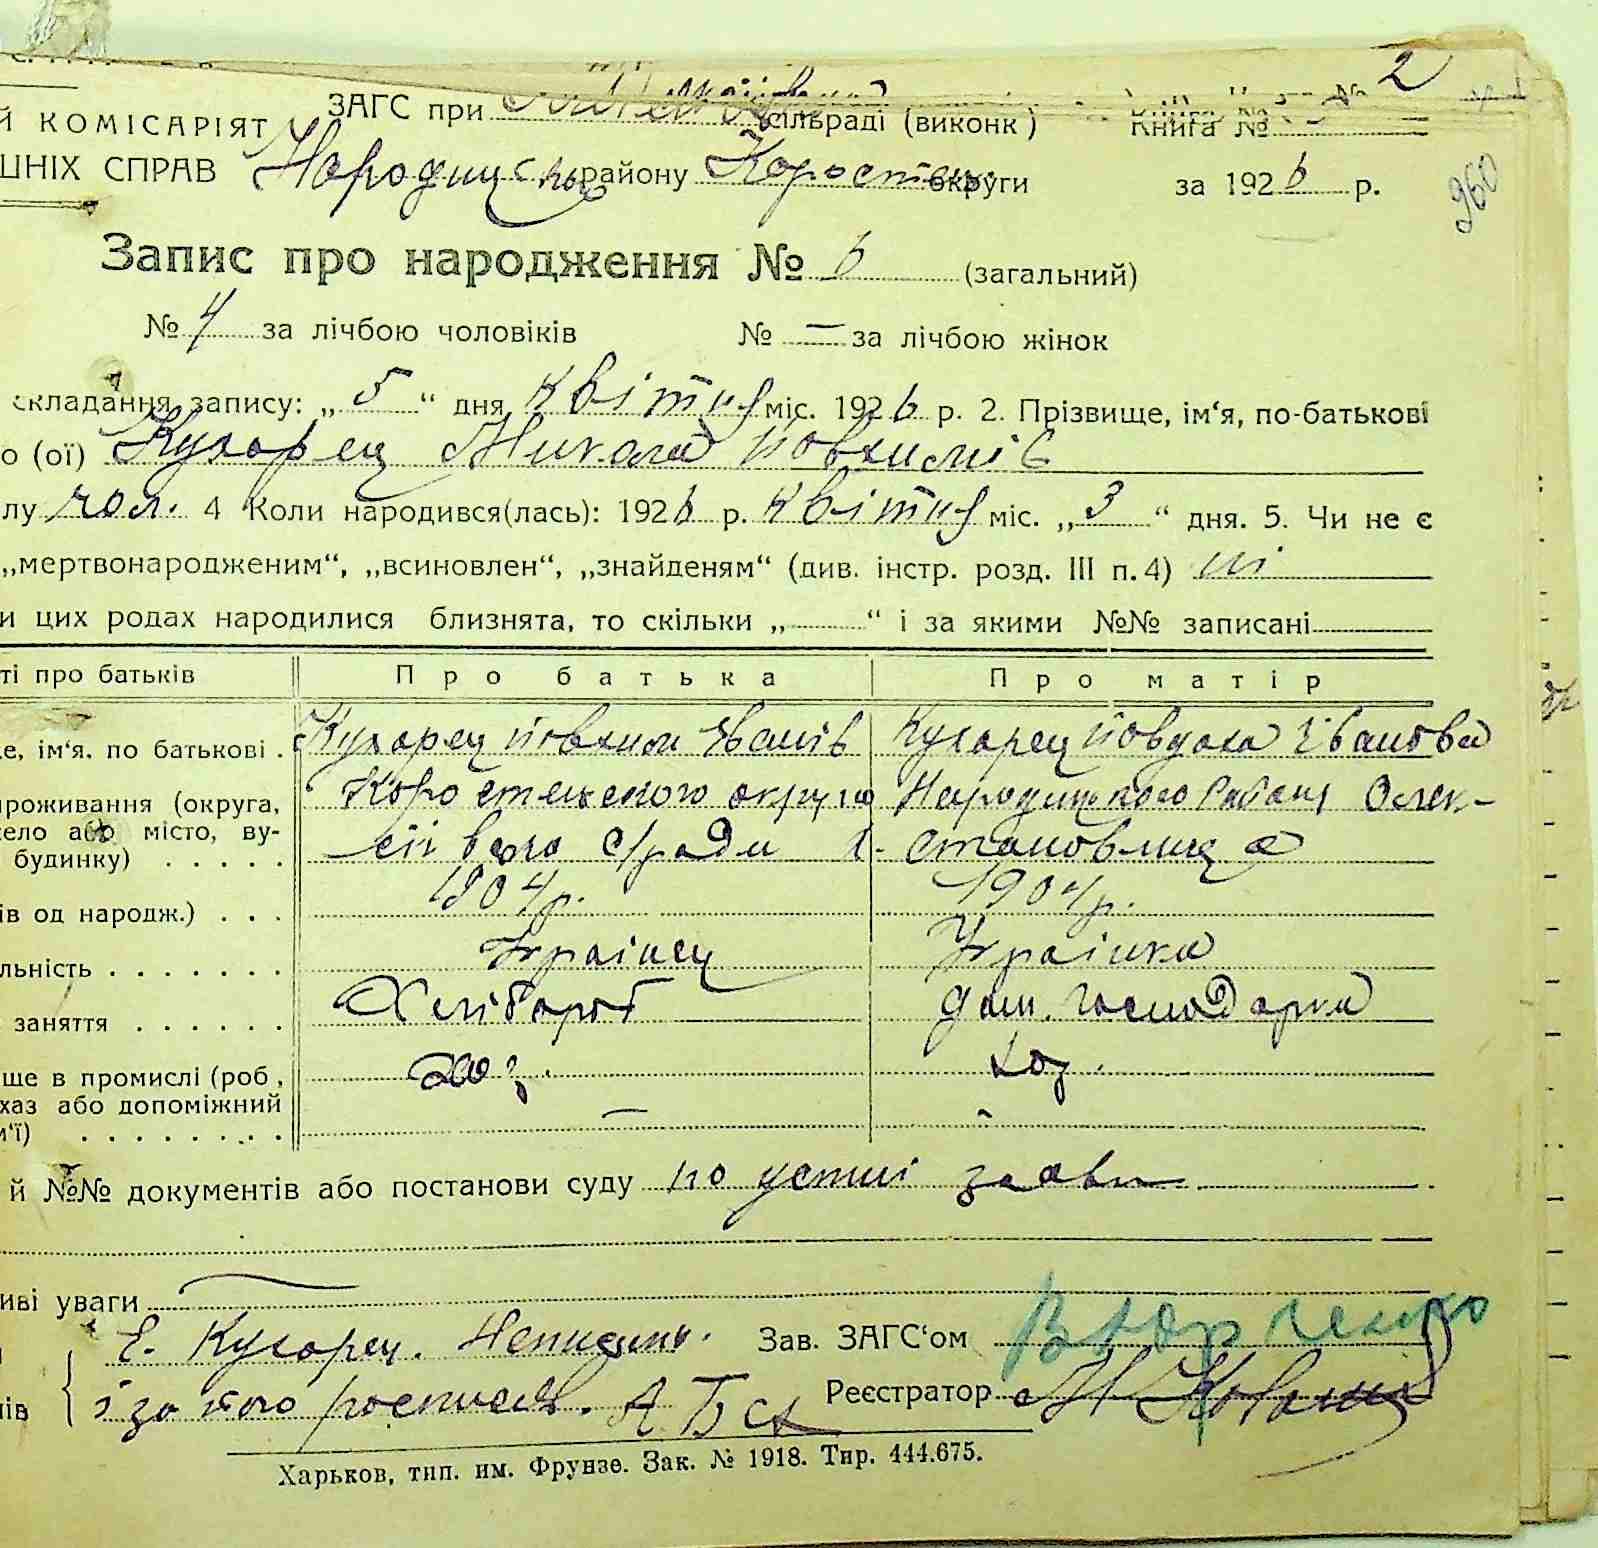 2
Й КОМІСАРІЯТ ЗАГС при сільраді (виконк ) Книга №
ШНІХ СПРАВ Народицького району Коростен. округи за 1926 р.
960
Запис про народження № 6 (загальний)
№ 4 за лічбою чоловіків № — за лічбою жінок
складання запису: „ 5 “ дня квітня міс. 1926 р. 2. Прізвище, ім‘я, по-батькові
о (ої) Кухарец Микола Йовхимів
лу чол. 4 Коли народився(лась): 1926 р. квітня міс. „ 3 “ дня. 5. Чи не є
„мертвонародженим“, „всиновлен“, „знайденям“ (див. інстр. розд. III п. 4) ні
и цих родах народилися близнята, то скільки „ “ і за якими №№ записані
ті про батьків Про батька Про матір
е, ім‘я. по батькові . Кухарец Йовхим Іванів Кухарец Йовдоха Іванова
проживання (округа, Коростенського округа Народицького Району Олек-
село або місто, ву- сіївсько с/ради с. Становлища
будинку) . . . . .
1904 р. 1904 р.
ів од народж.) . . .
льність . . . . . . . Українец Українка
заняття . . . . . . Хлібороб дом. господарка
ще в промислі (роб , хоз. хоз.
хаз або допоміжний
м‘ї) . . . . . . . . — —
й №№ документів або постанови суду по устні заяви
иві уваги —
Е. Кухарец. Неписьм. Зав. ЗАГС‘ом
ів і за його росписався. А. Реєстратор
Харьков, тип. им. Фрунзе. Зак. № 1918. Тир. 444.675.